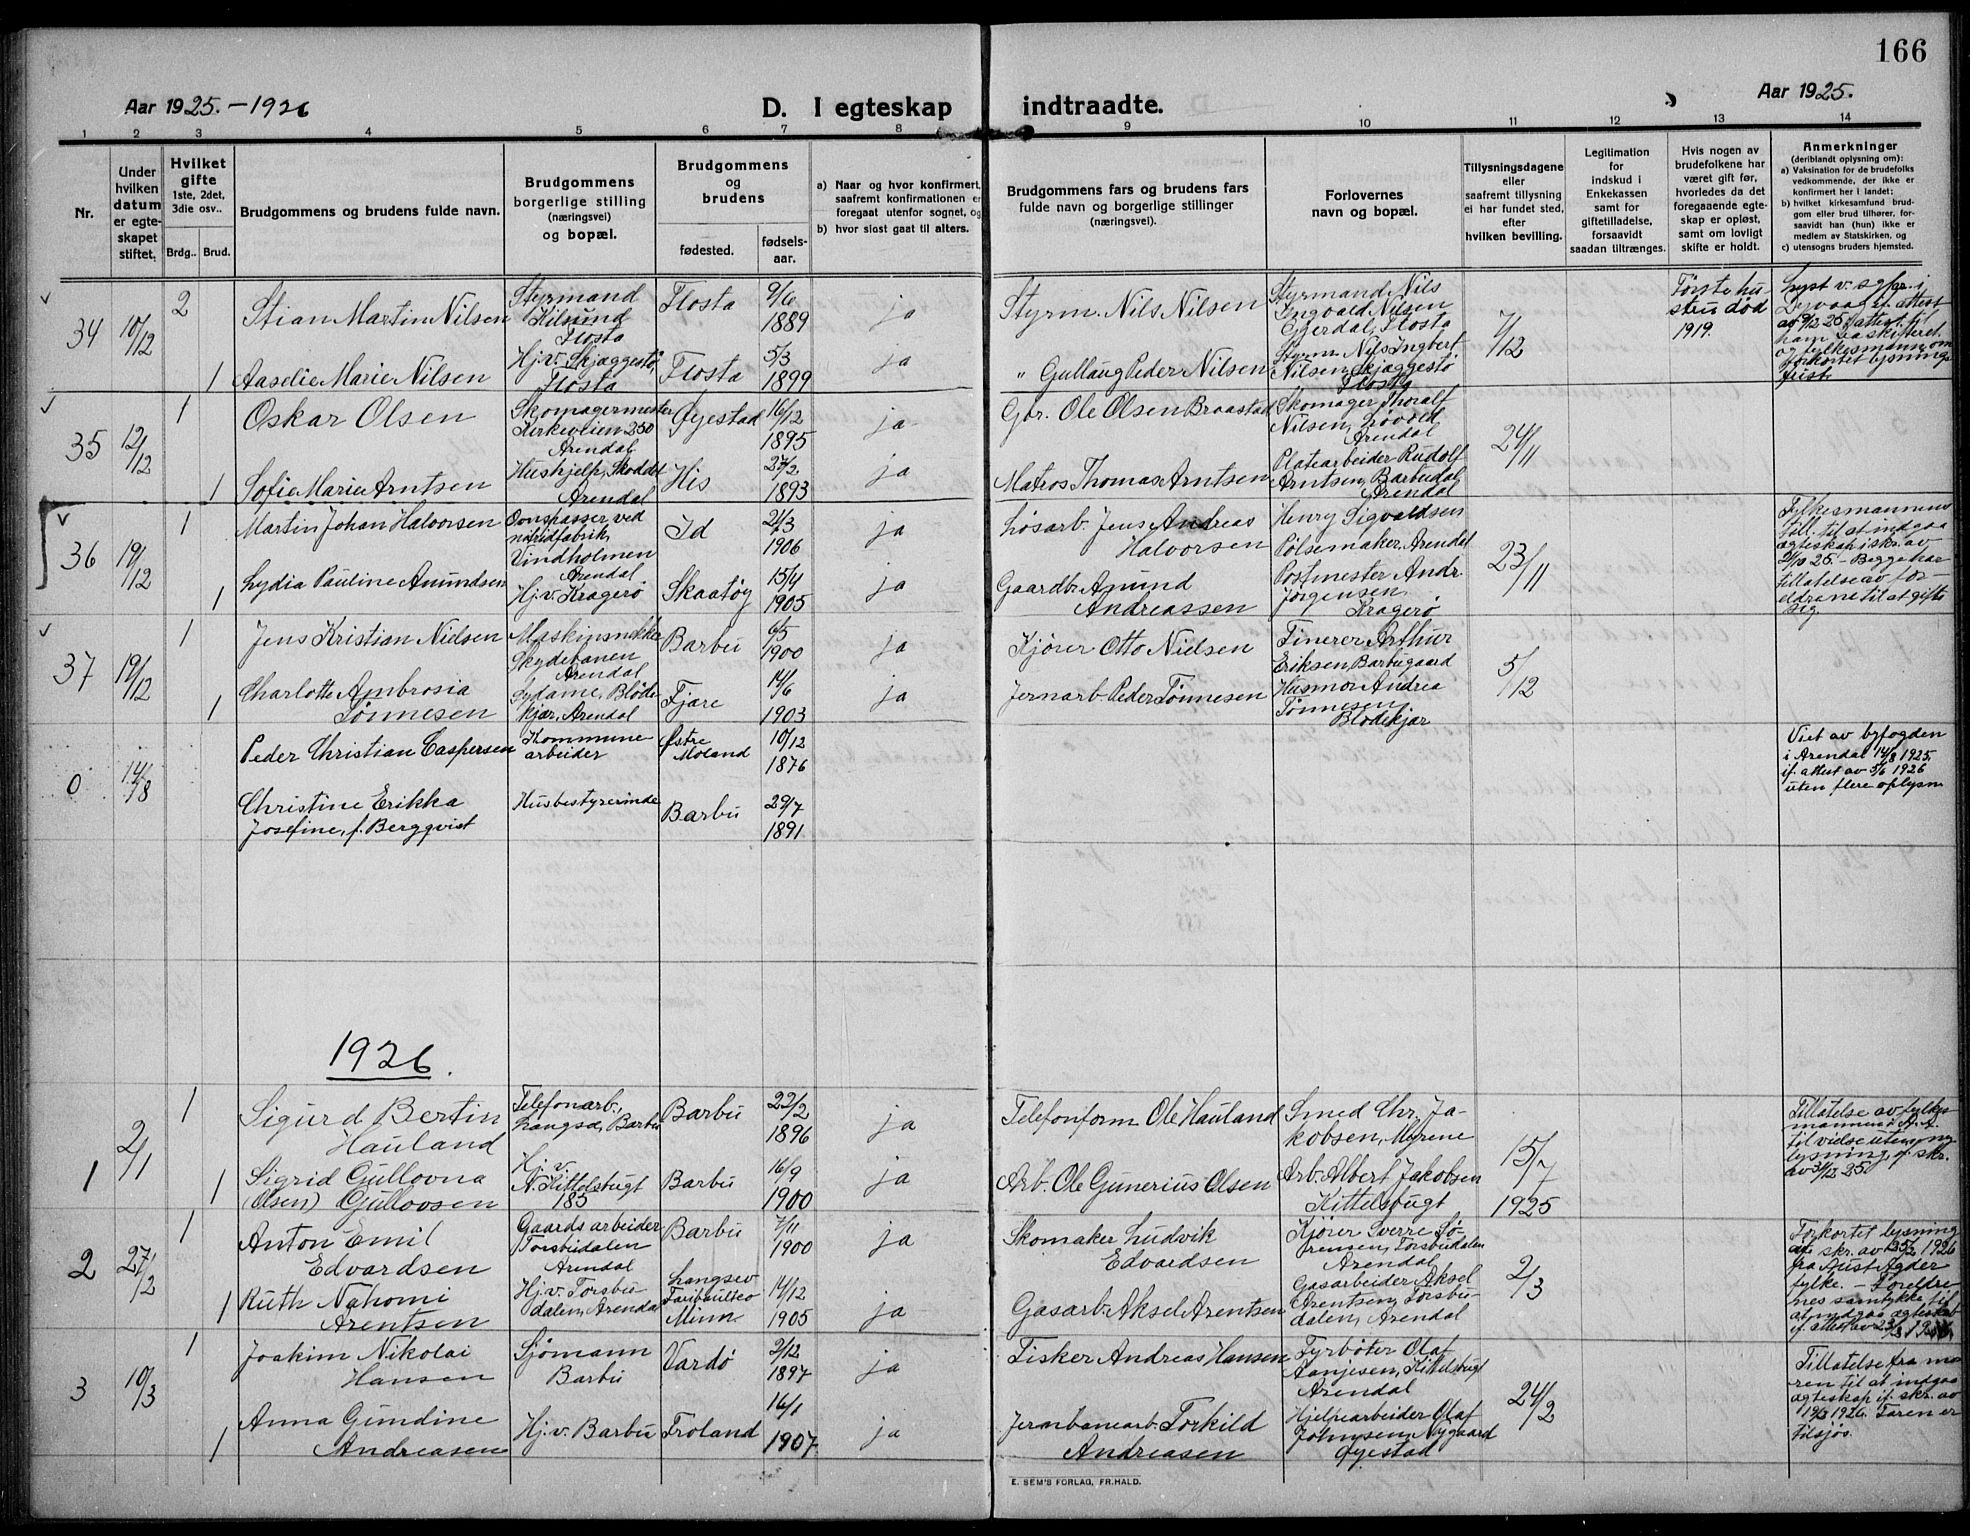 166
Aar 1925.-1926
D. I egteskap indtraadte.
Aar 1925.
1 2 3 4 5 6 7 8 9 10 11 12 13 14
Nr.
Under
hvilken
datum
er egte-
skapet
stiftet.
Hvilket
gifte
1ste, 2det,
3die osv..
Brdg.. Brud.
Brudgommens og brudens fulde navn.
Brudgommens
borgerlige stilling
(næringsvei)
og bopæl.
Brudgommens
og
brudens
fødested.
fødsels-
aar.
a) Naar og hvor konfirmert,
saafremt konfirmationen er
foregaat utenfor sognet, og
b) hvor sidst gaat til alters.
Brudgommens fars og brudens fars
fulde navn og borgerlige stillinger
(næringsvei).
Forlovernes
navn og bopæl.
Tillysningsdagene
eller
saafremt tillysning
ei har fundet sted,
efter
hvilken bevilling.
Legitimation
for
indskud i
Enkekassen
samt for
giftetilladelse,
forsaavidt
saadan tiltrænges.
Hvis nogen av
brudefolkene har
været gift før,
hvorledes da det
foregaaende egte-
skap er opløst,
samt om lovligt
skifte er holdt.
Anmerkninger
(deriblandt oplysning om):
a) Vaksination for de brudefolks
vedkommende, der ikke er
konfirmert her i landet;
b) hvilket kirkesamfund brud-
gom eller brud tilhører, for-
saavidt han (hun) ikke er
medlem av Statskirken, og
c) utensogns bruders hjemsted.
34 10/12 2
Stian Martin Nilsen
Styrmand
Kilsund
Flosta
Flosta
9/6
1889
ja
Styrm. Nils Nilsen
Styrmand Nils
Ingvald Nilsen
Gjerdal, Flosta
7/12
Første hu-
stru død
1919.
Lyst v. sgpr. i
Dypvaag if. attest
av 9/12 25
1 Aaselie Marie Nilsen
Hj. v. Skjaggestø,
Flosta
Flosta
5/3
1899
ja
" Gullaug Peder Nilsen
Styrm. Nils Ingbert
Nilsen, Skjaggestø
Flosta
og fylkesmannen om
forkortet lysnings-
frist.
35 12/12 1
Oskar Olsen
Skomagermester
Kirkeveien 250
Arendal
Øyestad
16/12
1895
ja
Gbr. Ole Olsen Braastad
Skomager Thoralf
Nilsen, Løvold
Arendal
24/11
1 Sofie Marie Arntsen
Hushjelp, Skoddet
Arendal
His
27/2
1893
ja
Matros Thomas Arntsen
Platearbeider Rudolf
Arntsen, Barbudal
Arendal
36 19/12 1
Martin Johan Halvorsen
Ovnspasser ved
nitridfabrik,
Vindholmen
Arendal
Id
21/3
1906
ja
Løsarb. Jens Andreas
Halvorsen
Henry Sigvaldsen
Pølsemaker, Arendal
23/11
Fylkesmannens
till. til at indgaa
ægteskap if. skr. av
2/10 25. - Begge har
tillatelse av for-
eldrene til at gifte
sig.
1 Lydia Pauline Amundsen
Hj. v. Kragerø
Skaatøy
15/4
1905
ja
Gaardbr. Amund
Andreassen
Postmester Andr.
Jørgensen,
Kragerø
37 19/12 1
Jens Kristian Nielsen
Maskinsnekker
Skydebanen
Arendal
Barbu
6/5
1900
ja
Kjører Otto Nielsen
Finerer Arthur
Eriksen, Barbugaard
5/12
1 Charlotte Ambrosia
Tønnesen
Sydame, Bløde-
kjær, Arendal
Fjære
14/6
1903
ja
Jernarb. Peder Tønnesen
Husmor Andrea
Tønnesen,
Blødekjær
0 14/8
Peder Christian Caspersen
Kommune-
arbeider
Østre
Moland
10/12
1876
Viet av byfogden
i Arendal 14/8 1925,
if. attest av 5/6 1926
uten flere oplysn.
Christine Erikka
Josefine, f. Bergqvist
Husbestyrerinde
Barbu
29/7
1891
1926.
1 2/1 1
Sigurd Bertin
Hauland
Telefonarb.,
Langsæ, Barbu
Barbu
22/2
1896
ja
Telefonform Ole Hauland
Smed Chr. Ja-
kobsen, Myrene
15/7
1925
Tillatelse av fylkes-
mannen i A. A.
til vielse uten ny
lysning, if. skr.
av 31/12 25.
1 Sigrid Gullovna
(Olsen) Gullovsen
Hj. v.
N. Kittelsbugt
185
Barbu
16/9
1900
ja
Arb. Ole Gunerius Olsen
Arb. Albert Jakobsen
Kittelsbugt
2 27/2 1
Anton Emil
Edvardsen
Gaardsarbeider
Torsbudalen
Arendal
Barbu
7/11
1900
ja
Skomaker Ludvik
Edvardsen
Kjører Sverre Sø-
rensen, Torsbudalen
Arendal
2/3
Forkortet lysning
skr. av 25/2 1926
fra Aust-Agder
fylke. - Foreldre-
nes samtykke til
at indgaa ægteskab
if. attest av
1 Ruth Nahomi
Arentsen
Hj. v. Torsbu-
dalen, Arendal
Langsev
Faribaulteo
Minn
14/12
1905
ja
Gasarb. Aksel Arentsen
Gasarbeider Aksel
Arentsen, Torsbu-
dalen, Arendal
3 10/3 1
Joakim Nikolai
Hansen
Sjømann
Barbu
Vardø
2/12
1897
ja
Fisker Andreas Hansen
Fyrbøter Olaf
Aanjesen, Kittelsbugt
Arendal
24/2
Tillatelse fra mo-
ren til at indgaa
ægteskap if. skr. av
1926. Faren er
tilsjøs.
1 Anna Gundine
Andreasen
Hj. v. Barbu
Froland
16/1
1907.
ja
Jernbanearb. Torkild
Andreasen
Hjelpearbeider Olaf
Johnsen, Nygaard
Øyestad
E. SEM'S FORLAG, FR.HALD.